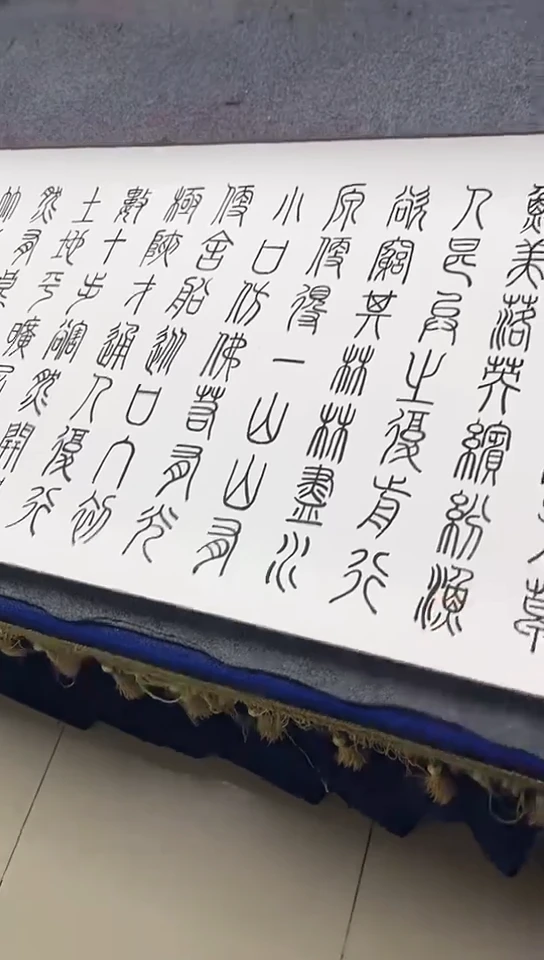 草
鮮美落英繽紛漁
人甚異之復前行
欲窮其林林盡水
原便得一山山有
小口仿佛若有光
便舍船從口入初
極狹才通人復行
數十步豁然開
土地平曠
然有